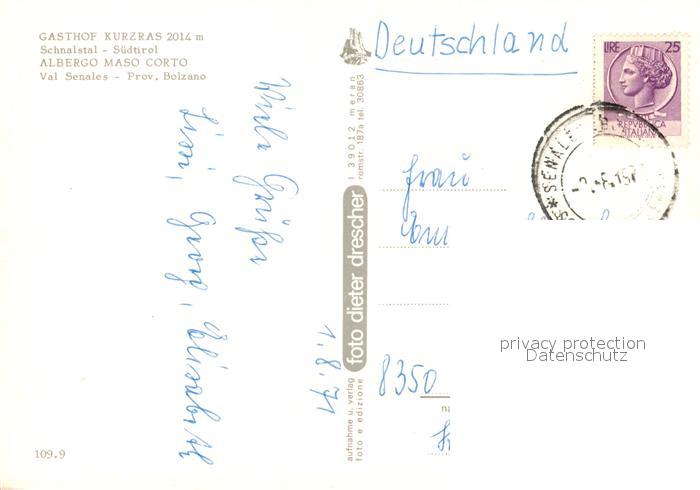 GASTHOF KURZRAS 2014 m
Schnalstal - Südtirol
ALBERGO MASO CORTO
Val Senales - Prov. Bolzano
Viele Grüße
Georg, Elisabeth
1.8.71
109.9
I 39012 meran
romstr. 187a tel. 30863
foto dieter drescher
aufnahme u. verlag
foto e edizione
Deutschland
LIRE 25
REPVBBLICA
ITALIANA
SENALE
Frau
8350
privacy protection
Datenschutz